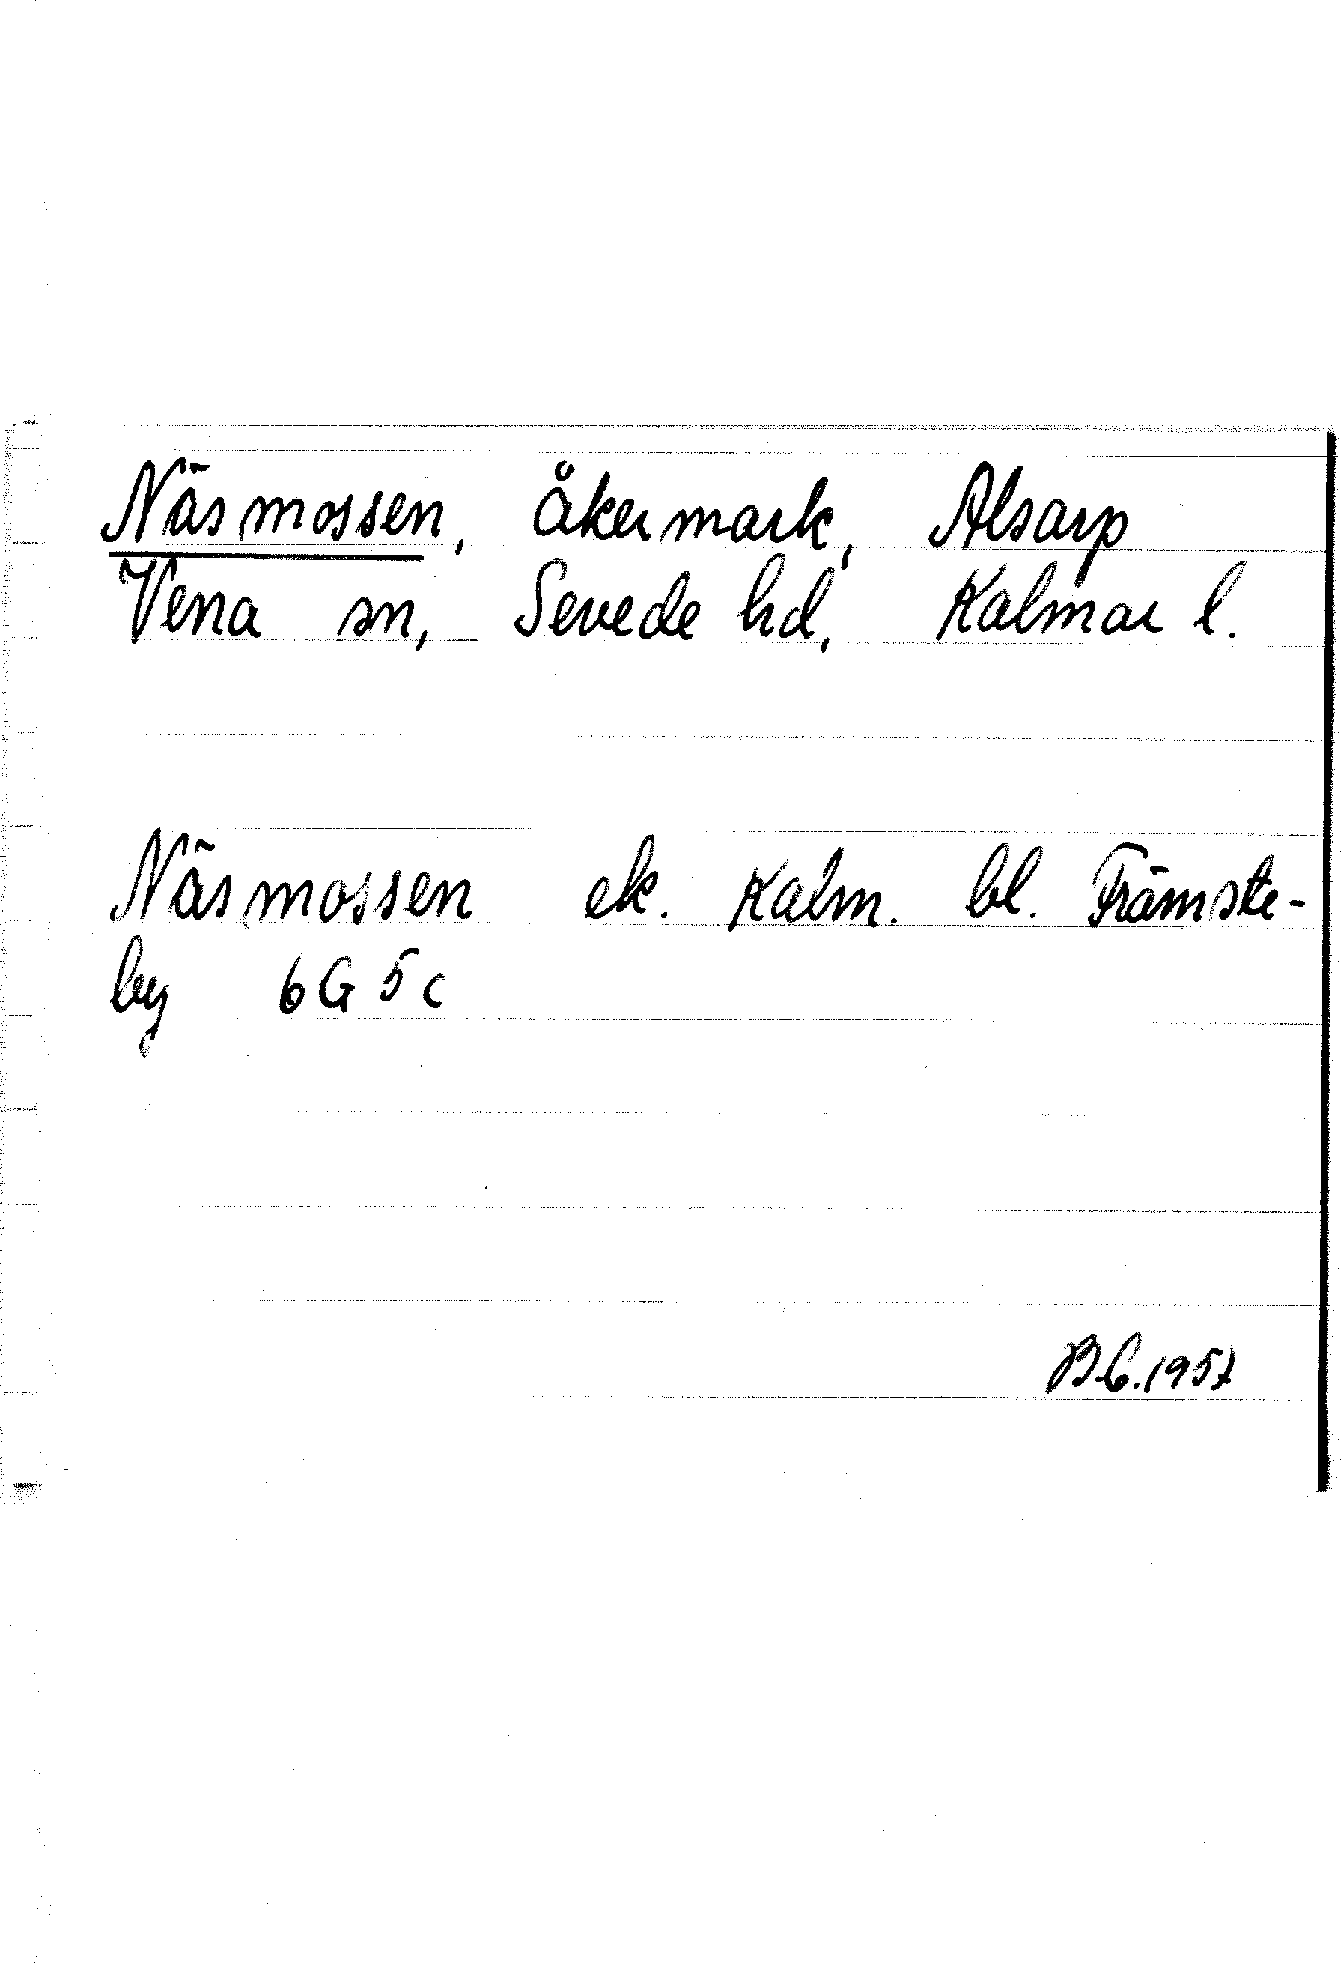 Näsmossen, åkermark, Alsarp
Vena sn, Sevede hd, Kalmar l.
Näsmossen ek. Kalm. bl. Främste-
by 6G5c
B.C. 1957